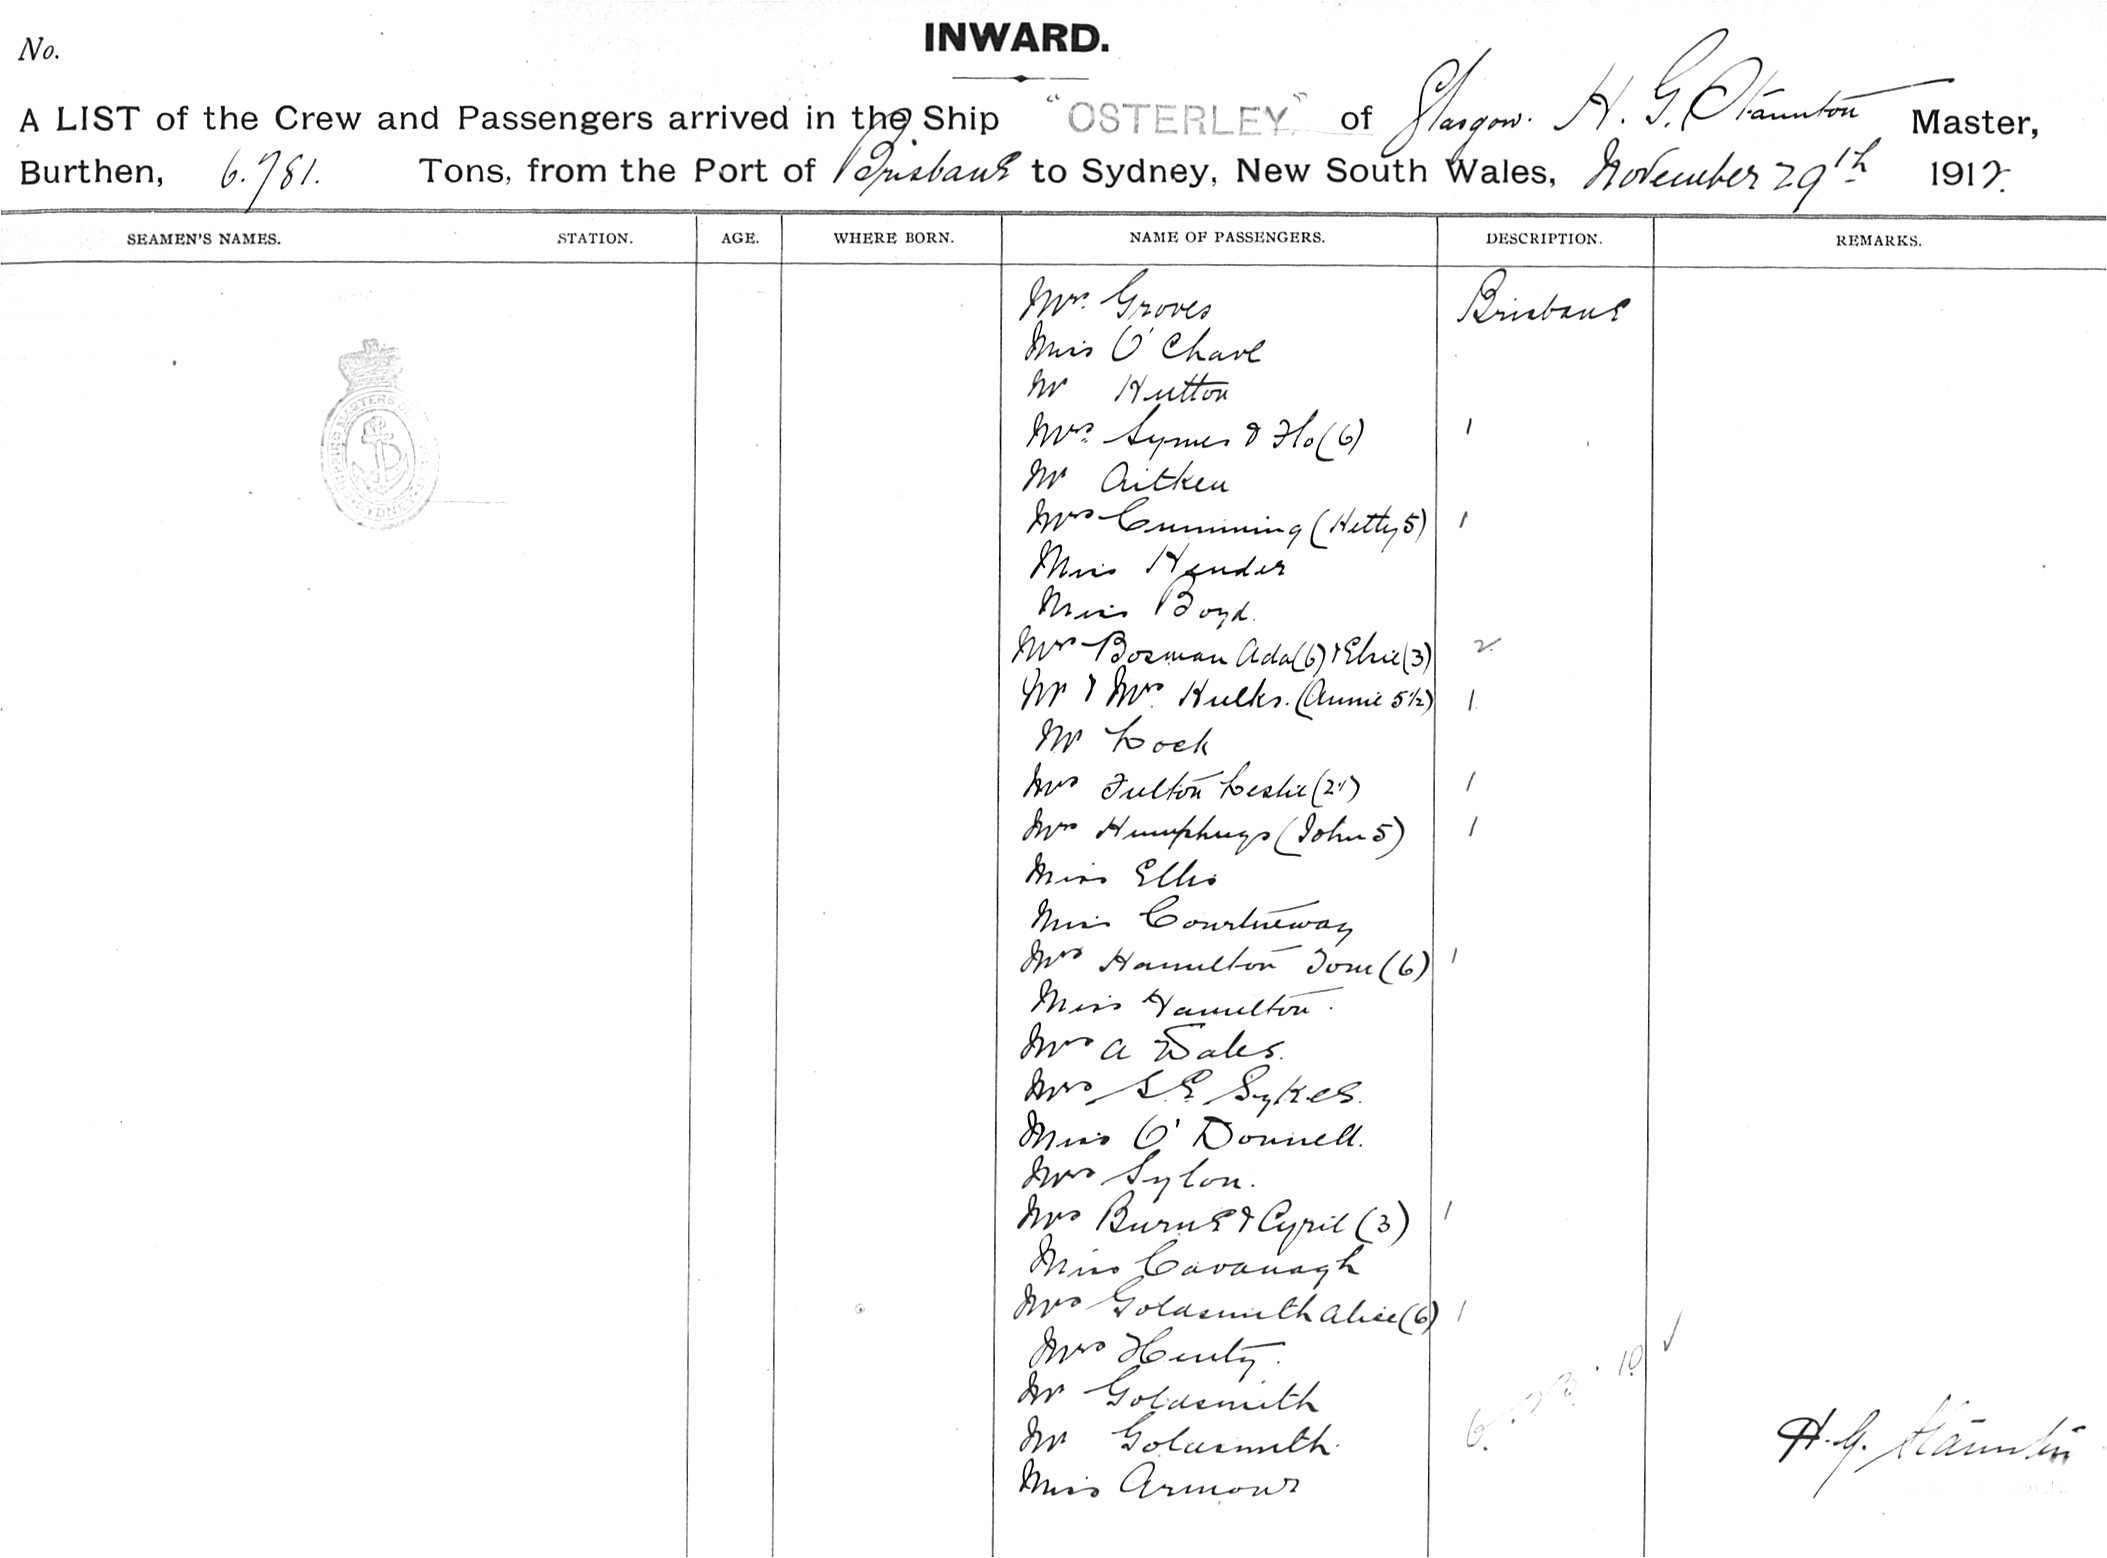 No.
INWARD.
A LIST of the Crew and Passengers arrived in the Ship "OSTERLEY" of Glasgow. H. G. Staunton Master,
Burthen, 6.781. Tons, from the Port of Brisbane to Sydney, New South Wales, November 29th 1912.
SEAMEN'S NAMES. STATION. AGE. WHERE BORN. NAME OF PASSENGERS. DESCRIPTION. REMARKS.
Mrs. Groves Brisbane
Miss O'Chare
Mr Hutton
Mrs. Symes & Flo (6) 1
Mr Aitken
Mrs Cumming (Hetty 5) 1
Miss Hender
Miss Boyd.
Mrs Bosman Ada (6) & Elsie (3) 2
Mr & Mrs. Hulks. (Annie 5½) 1
Mr Lock
Mrs Fulton Leslie 1
Mrs Humphreys (John 5) 1
Miss Ellis
Miss Courtneway
Mrs Hamilton Tom (6) 1
Miss Hamilton.
Mrs A Wales.
Mrs S. E. Sykes.
Miss O'Donnell.
Mrs Sylon.
Mrs Burns & Cyril (3) 1
Miss Cavanagh
Mrs Goldsmith Alice (6) 1
Mrs Henty.
Mr Goldsmith
Mr Goldsmith.
Miss Armour
H. G. Staunton
SYDNEY